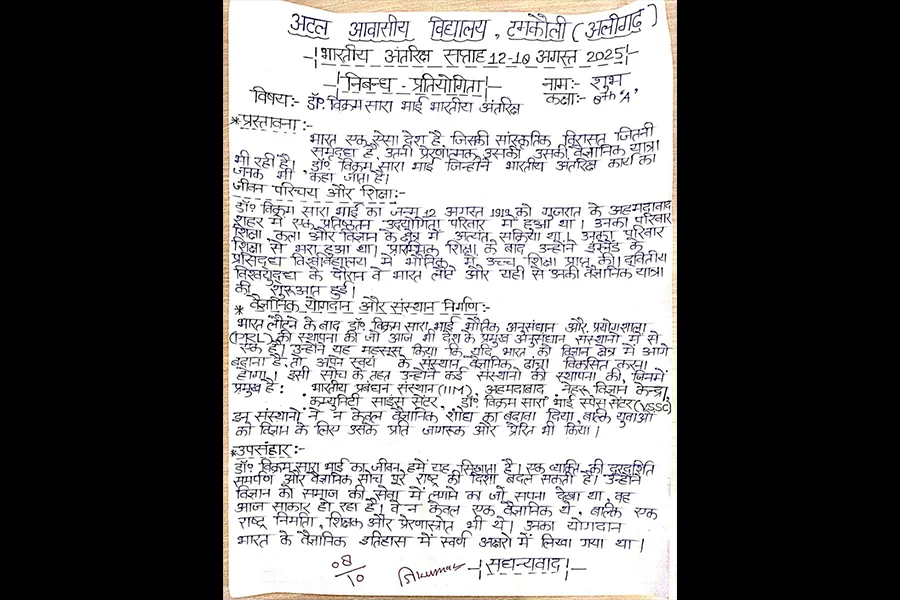 अटल आवासीय विद्यालय, टमकौली (अलीगढ़)
भारतीय अंतरिक्ष सप्ताह 12-18 अगस्त 2025
निबन्ध - प्रतियोगिता
नामः- शुभ
विषयः- डॉ० विक्रम सारा भाई भारतीय अंतरिक्ष
कक्षाः- 8th 'A'
*प्रस्तावना :-
भारत एक ऐसा देश है, जिसकी सांस्कृतिक विरासत जितनी
समृद्धा है, उतनी प्रेरणात्मक उसकी उसकी वैज्ञानिक यात्रा
भी रही है। डॉ० विक्रम सारा भाई जिन्होंने भारतीय अंतरिक्ष कार्य का
जनक भी कहा जाता है।
जीवन परिचय और शिक्षा:-
डॉ० विक्रम सारा भाई का जन्म 12 अगस्त 1919 को गुजरात के अहमदाबाद
शहर में एक प्रतिष्ठतम उदयोगिता परिवार में हुआ था। उनका परिवार
शिक्षा, कला और विज्ञान के क्षेत्र में अत्यंत सक्रिया था। उनका परिवार
शिक्षा से भरा हुआ था। प्रारम्भिक शिक्षा के बाद उन्होंने इंग्लैंड के
प्रसिदध विश्वविद्यालय में भौतिक में उच्च शिक्षा प्राप्त की। दवितीय
विश्वयुदध के दौरान वे भारत लौटे और यही से उनकी वैज्ञानिक यात्रा
की शुरूआत हुई।
* वैज्ञानिक योगदान और संस्थान निर्माण:-
भारत लौटने के बाद डॉ० विक्रम सारा भाई भौतिक अनुसंधान और प्रयोगशाला
(PRL) की स्थापना की जो आज भी देश के प्रमुख अनुसंधान संस्थानों में से
एक है। उन्होंने यह महसूस किया कि यदि भारत को विज्ञान क्षेत्र में आगे
बढ़ाना है तो अपने स्वयं के संस्थान, वैज्ञानिक ढांचा विकसित करना
होगा। इसी सोच के तहत उन्होंने कई संस्थानों की स्थापना की, जिनमें
प्रमुख है : भारतीय प्रबंधन संस्थान (IIM), अहमदाबाद नेहरू विज्ञान केन्द्रा,
कम्युनिटी साइंस सेंटर, डॉ० विक्रम सारा भाई स्पेस सेंटर (VSSC)
इन संस्थानों ने न केवल वैज्ञानिक शोधा का बढ़ावा दिया, बल्कि युवाओं
को विज्ञान के लिए उसके प्रति जागरूक और प्रेरित भी किया।
*उपसंहार:-
डॉ० विक्रम सारा भाई का जीवन हमें यह सिखाता है। एक व्यक्ति की दूरदर्शिता
समर्पण और वैज्ञानिक सोच पूरे राष्ट्र की दिशा बदल सकती है। उन्होंने
विज्ञान को समाज की सेवा में लगाने का जो सपना देखा था, वह
आज साकार हो रहा है। वे न केवल एक वैज्ञानिक थे, बल्कि एक
राष्ट्र निर्माता, शिक्षक और प्रेरणास्रोत भी थे। उनका योगदान
भारत के वैज्ञानिक इतिहास में स्वर्ण अक्षरों में लिखा गया था।
08/10
सधन्यवाद